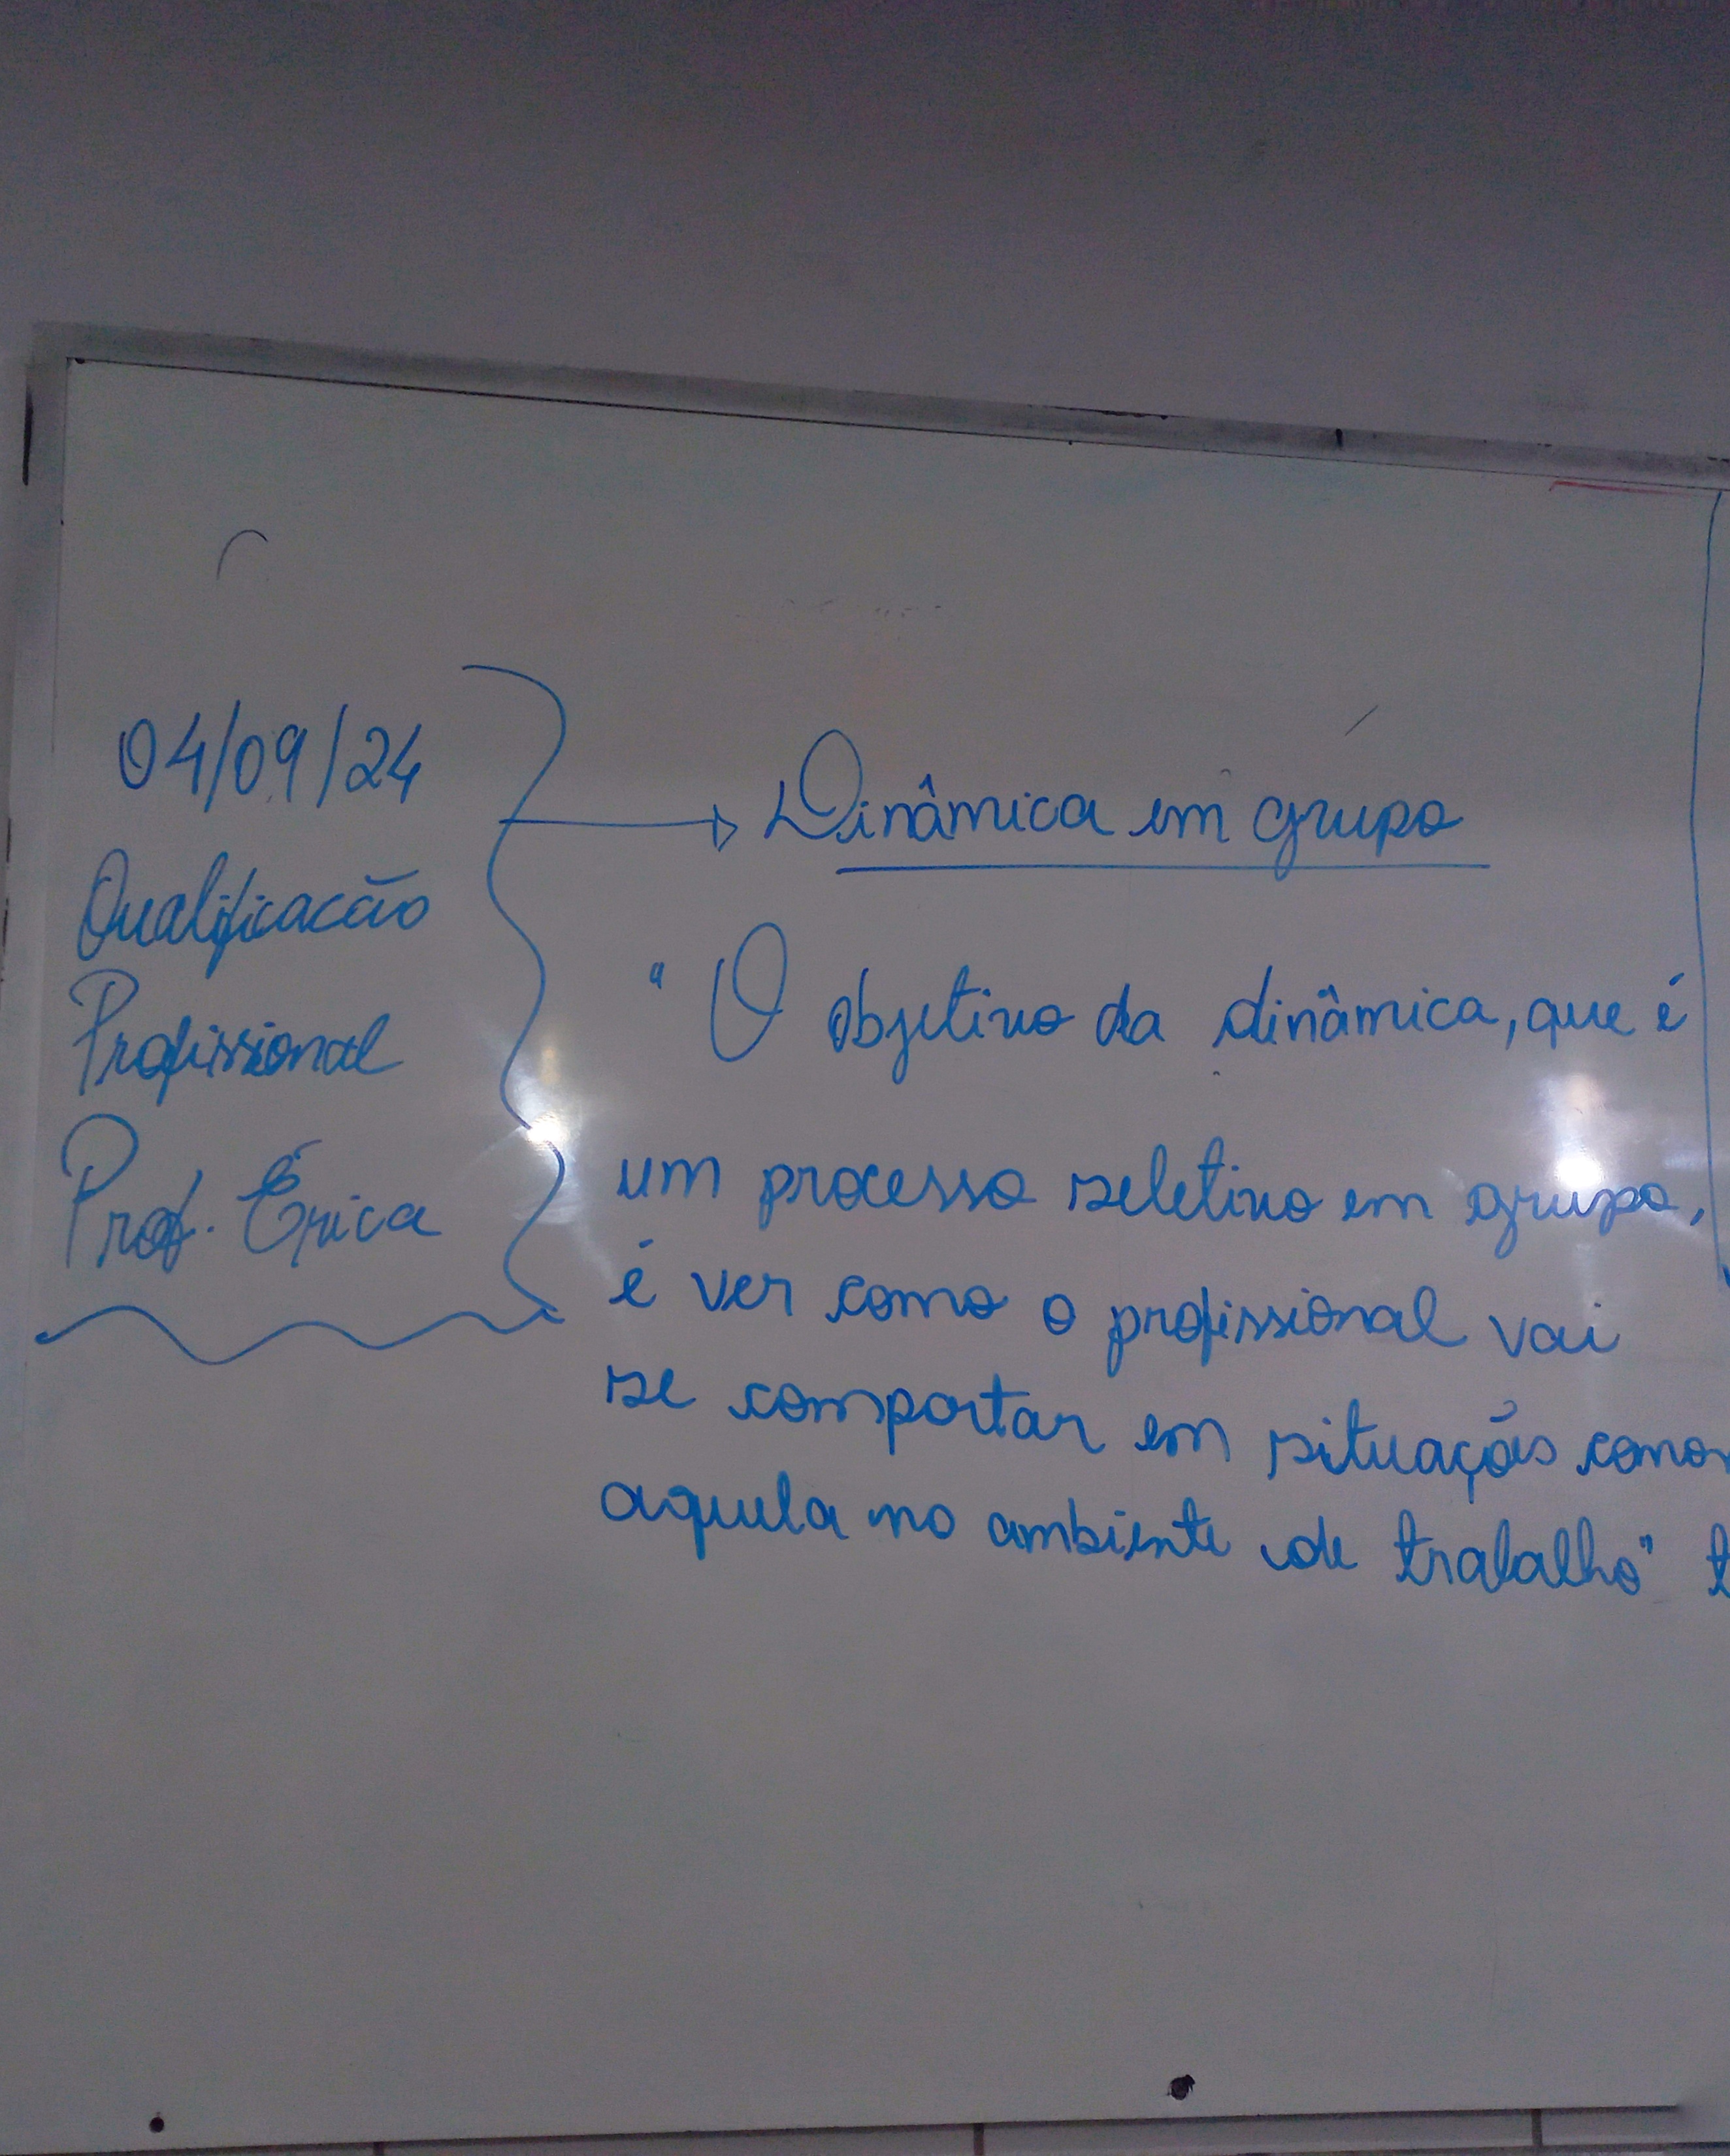 04/09/24
Qualificacão
Profissional
Prof. Érica
Dinâmica em grupo
" O objetivo da dinâmica, que é
um processo seletivo em grupo,
é ver como o profissional vai
se comportar em situações como
aquela no ambiente de trabalho"